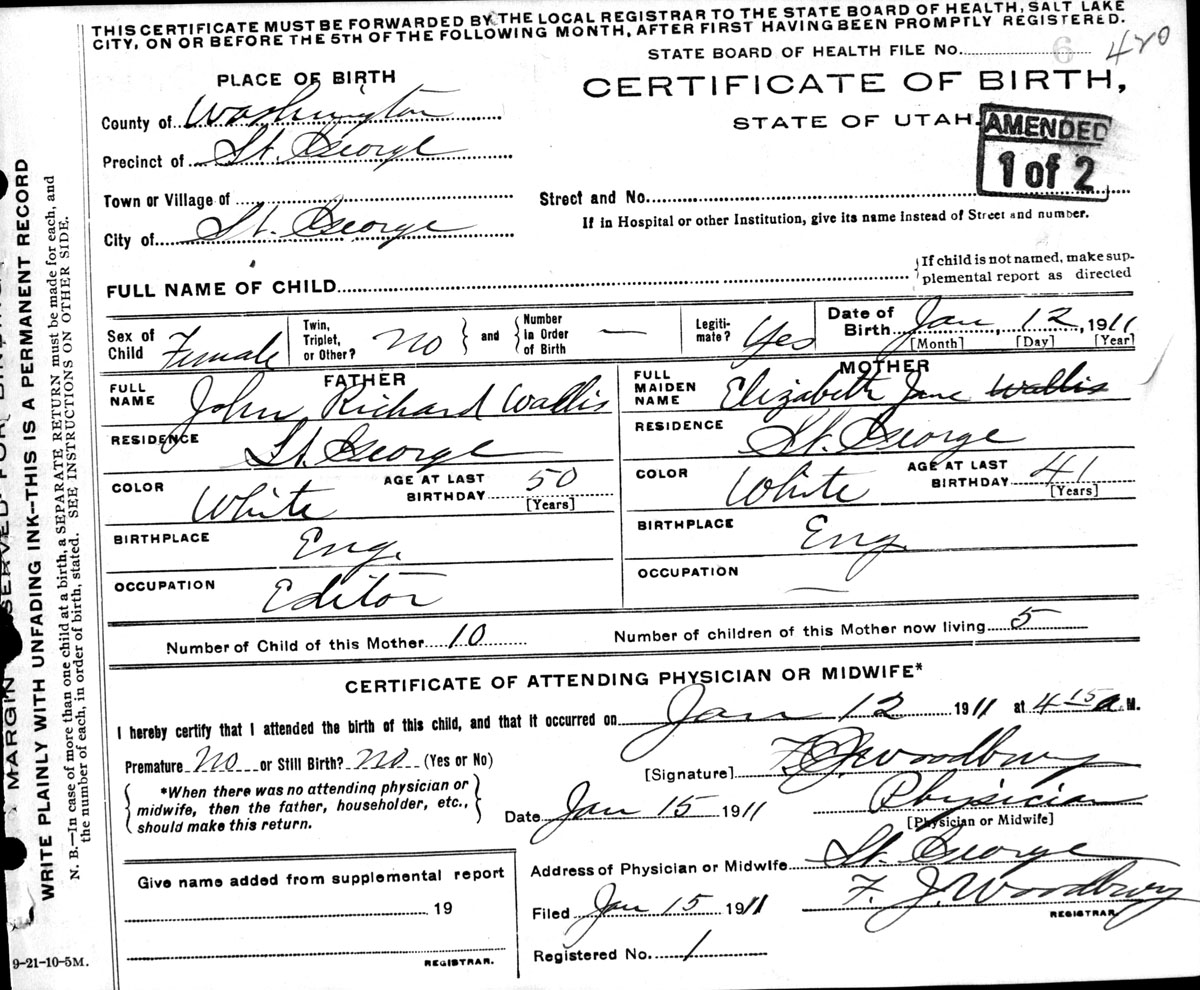 THIS CERTIFICATE MUST BE FORWARDED BY THE LOCAL REGISTRAR TO THE STATE BOARD OF HEALTH, SALT LAKE
CITY, ON OR BEFORE THE 5TH OF THE FOLLOWING MONTH, AFTER FIRST HAVING BEEN PROMPTLY REGISTERED.
STATE BOARD OF HEALTH FILE No. 6 420
PLACE OF BIRTH
CERTIFICATE OF BIRTH,
STATE OF UTAH.
AMENDED
1 of 2
County of Washington
Precinct of St. George
Town or Village of
Street and No.
City of St. George
If in Hospital or other Institution, give its name instead of Street and number.
FULL NAME OF CHILD
If child is not named, make sup-
plemental report as directed
Sex of Child Female
Twin, Triplet, or Other? No and Number in Order of Birth —
Legiti-mate? Yes
Date of Birth Jan, 12, 1911
[Month] [Day] [Year]
FATHER
FULL NAME John Richard Wallis
RESIDENCE St. George
COLOR White AGE AT LAST BIRTHDAY 50 [Years]
BIRTHPLACE Eng.
OCCUPATION Editor
MOTHER
FULL MAIDEN NAME Elizabeth Jane Wallis
RESIDENCE St. George
COLOR White AGE AT LAST BIRTHDAY 41 [Years]
BIRTHPLACE Eng.
OCCUPATION —
Number of Child of this Mother 10 Number of children of this Mother now living 5
CERTIFICATE OF ATTENDING PHYSICIAN OR MIDWIFE*
I hereby certify that I attended the birth of this child, and that it occurred on Jan 12 1911 at 4 15 a M.
Premature No or Still Birth? No (Yes or No)
[Signature] F. J. Woodbury
*When there was no attending physician or
midwife, then the father, householder, etc.,
should make this return.
Date Jan 15 1911 Physician
[Physician or Midwife]
Address of Physician or Midwife St. George
Give name added from supplemental report
19
REGISTRAR.
Filed Jan 15 1911 F. J. Woodbury
REGISTRAR
Registered No. 1
9-21-10-5M.
MARGIN RESERVED FOR BINDING
WRITE PLAINLY WITH UNFADING INK—THIS IS A PERMANENT RECORD
N. B.—In case of more than one child at a birth, a SEPARATE RETURN must be made for each, and
the number of each, in order of birth, stated. SEE INSTRUCTIONS ON OTHER SIDE.